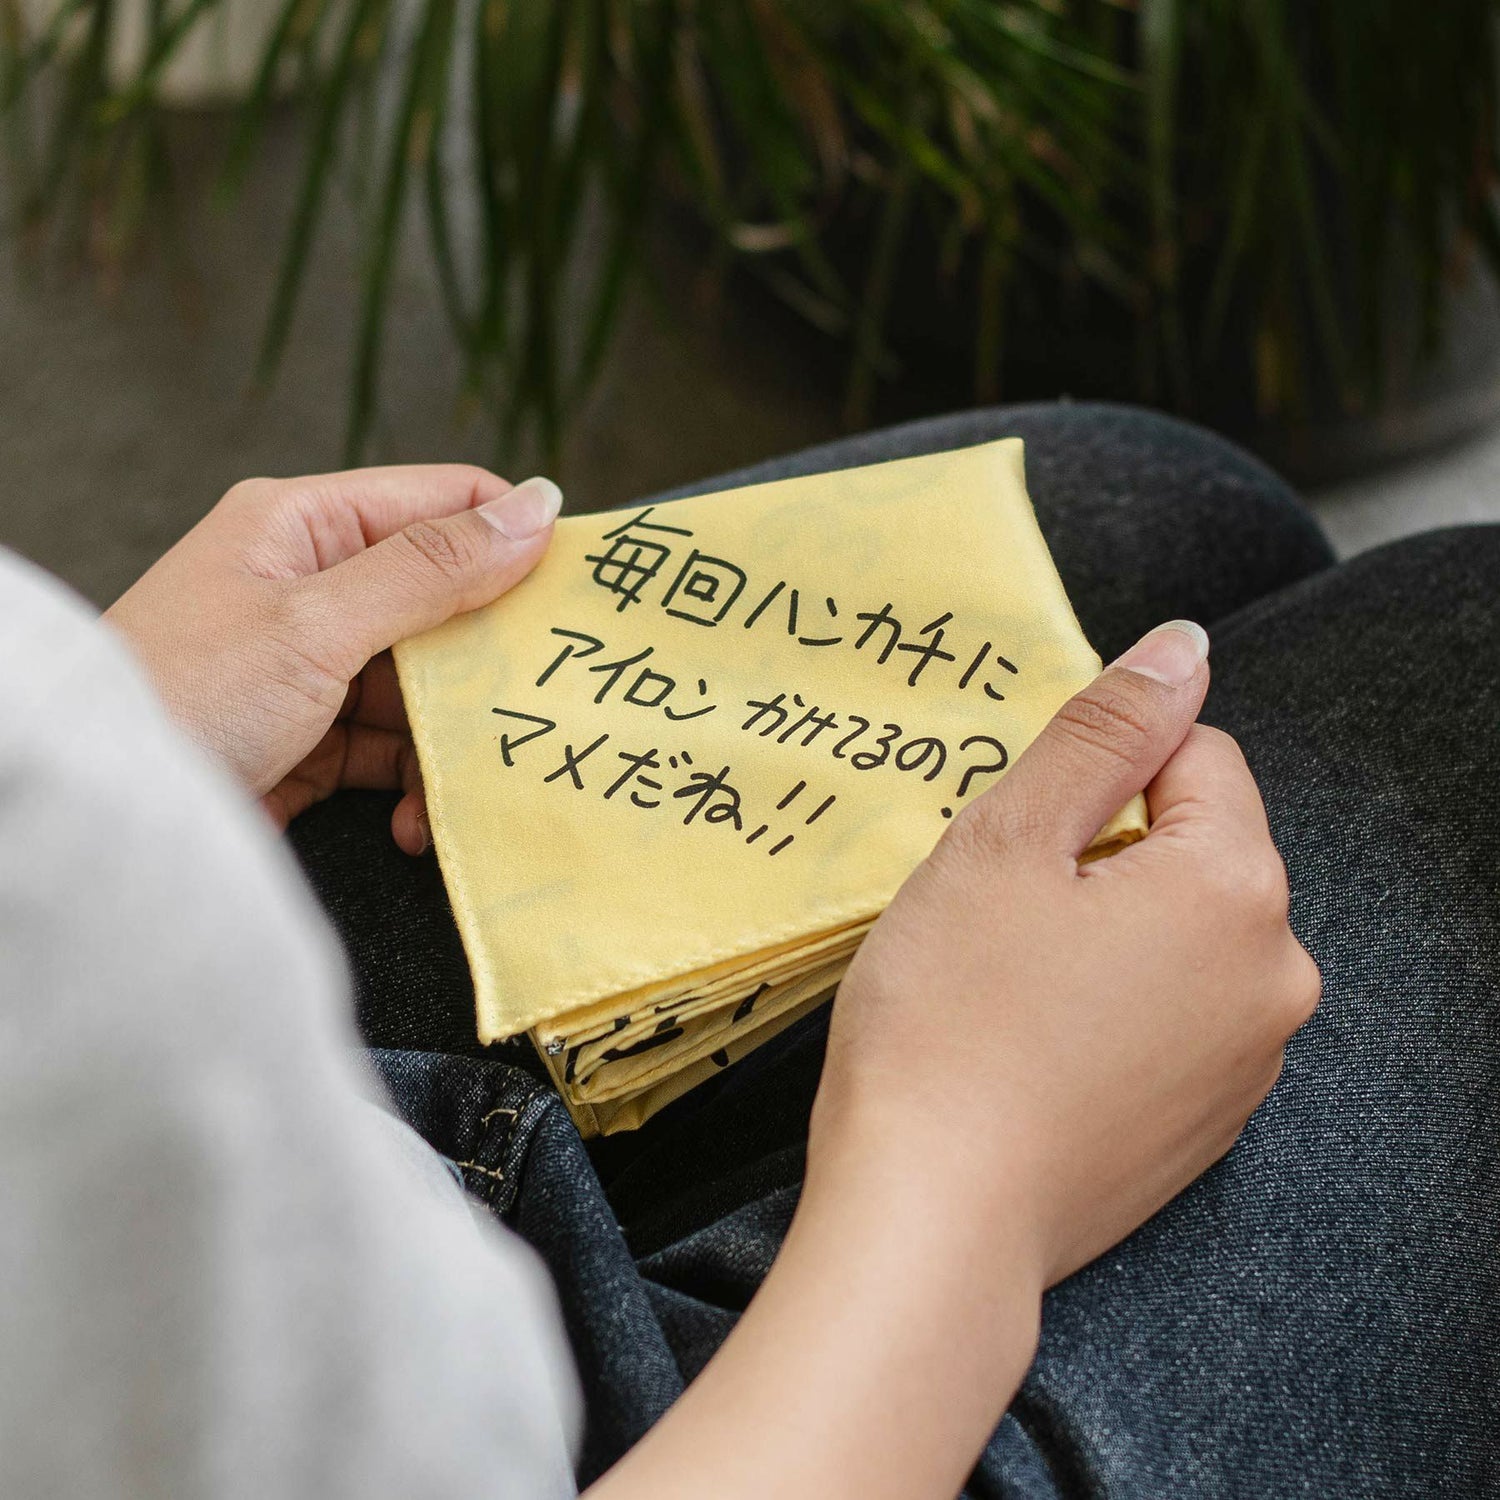 毎回ハンカチに
アイロンかけてるの?
マメだね!!